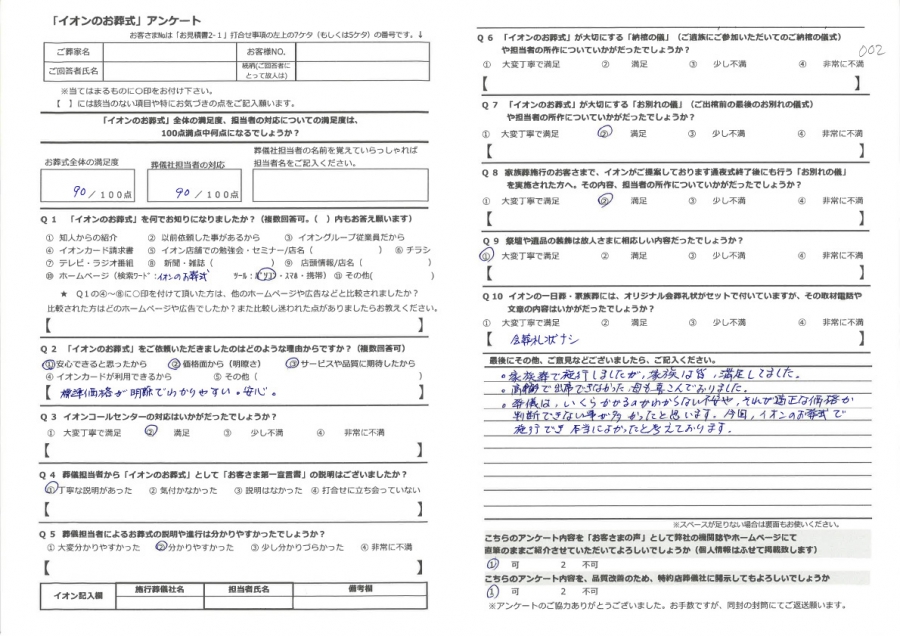 「イオンのお葬式」アンケート
お客さまNoは「お見積書2-1」打合せ事項の左上の7ケタ（もしくは5ケタ）の番号です。↓
ご葬家名
お客様NO.
ご回答者氏名
続柄(ご回答者にとって故人は)
※当てはまるものに○印をお付け下さい。
【 】には該当のない項目や特にお気づきの点をご記入願います。
「イオンのお葬式」全体の満足度、担当者の対応についての満足度は、
100点満点中何点になるでしょうか？
お葬式全体の満足度
90／100点
葬儀社担当者の対応
90／100点
葬儀社担当者の名前を覚えていらっしゃれば
担当者名をご記入ください。
Q１ 「イオンのお葬式」を何でお知りになりましたか？（複数回答可。（ ）内もお答え願います）
① 知人からの紹介 ② 以前依頼した事があるから ③ イオングループ従業員だから
④ イオンカード請求書 ⑤ イオン店舗での勉強会・セミナー/店名（ ） ⑥ チラシ
⑦ テレビ・ラジオ番組 ⑧ 新聞・雑誌（ ） ⑨ 店頭情報/店名（ ）
⑩ ホームページ（検索ワード：イオンのお葬式 ツール：パソコン・スマホ・携帯） ⑪ その他( )
★ Q１の④～⑧に○印を付けて頂いた方は、他のホームページや広告などと比較されましたか？
比較された方はどのホームページや広告でしたか？また比較し迷われた点がありましたらお教えください。
【 】
Q２ 「イオンのお葬式」をご依頼いただきましたのはどのような理由からですか？（複数回答可）
①安心できると思ったから ②価格面から（明瞭さ） ③サービスや品質に期待したから
④イオンカードが利用できるから ⑤その他（ ）
【 標準価格が明瞭でわかりやすい。安心。 】
Q３ イオンコールセンターの対応はいかがだったでしょうか？
① 大変丁寧で満足 ② 満足 ③ 少し不満 ④ 非常に不満
【 】
Q４ 葬儀担当者から「イオンのお葬式」として「お客さま第一宣言書」の説明はございましたか？
①丁寧な説明があった ② 気付かなかった ③ 説明はなかった ④ 打合せに立ち会っていない
【 】
Q５ 葬儀担当者によるお葬式の説明や進行は分かりやすかったでしょうか？
①大変分かりやすかった ②分かりやすかった ③少し分かりづらかった ④非常に不満
【 】
イオン記入欄
施行葬儀社名
担当者氏名
備考欄
Q６ 「イオンのお葬式」が大切にする「納棺の儀」（ご遺族にご参加いただいてのご納棺の儀式）
や担当者の所作についていかがだったでしょうか？
002
① 大変丁寧で満足 ② 満足 ③ 少し不満 ④ 非常に不満
【 】
Q７ 「イオンのお葬式」が大切にする「お別れの儀」（ご出棺前の最後のお別れの儀式）
や担当者の所作についていかがだったでしょうか？
① 大変丁寧で満足 ② 満足 ③ 少し不満 ④ 非常に不満
【 】
Q８ 家族葬施行のお客さまで、イオンがご提案しております通夜式終了後にも行う「お別れの儀」
を実施された方へ。その内容、担当者の所作についていかがだったでしょうか？
① 大変丁寧で満足 ② 満足 ③ 少し不満 ④ 非常に不満
【 】
Q９ 祭壇や遺品の装飾は故人さまに相応しい内容だったでしょうか？
① 大変丁寧で満足 ② 満足 ③ 少し不満 ④ 非常に不満
【 】
Q10 イオンの一日葬・家族葬には、オリジナル会葬礼状がセットで付いていますが、その取材電話や
文章の内容はいかがだったでしょうか？
① 大変丁寧で満足 ② 満足 ③ 少し不満 ④ 非常に不満
【 会葬礼状ナシ 】
最後にその他、ご意見などございましたら、ご記入ください。
。家族葬で施行しましたが、家族は皆、満足してました。
。高齢で出席できなかった母も喜こんでおりました。
。葬儀は、いくらかかるのかわからない不安や、それが適正な価格か
判断できない事が多かったと思います。今回、イオンのお葬式で
施行でき本当によかったと考えております。
※スペースが足りない場合は裏面もお使いください。
こちらのアンケート内容を「お客さまの声」として弊社の機関誌やホームページにて
直筆のままご紹介させていただいてよろしいでしょうか（個人情報はふせて掲載致します）
1 可 2 不可
こちらのアンケート内容を、品質改善のため、特約店葬儀社に開示してもよろしいでしょうか
1 可 2 不可
※アンケートのご協力ありがとうございました。お手数ですが、同封の封筒にてご返送願います。